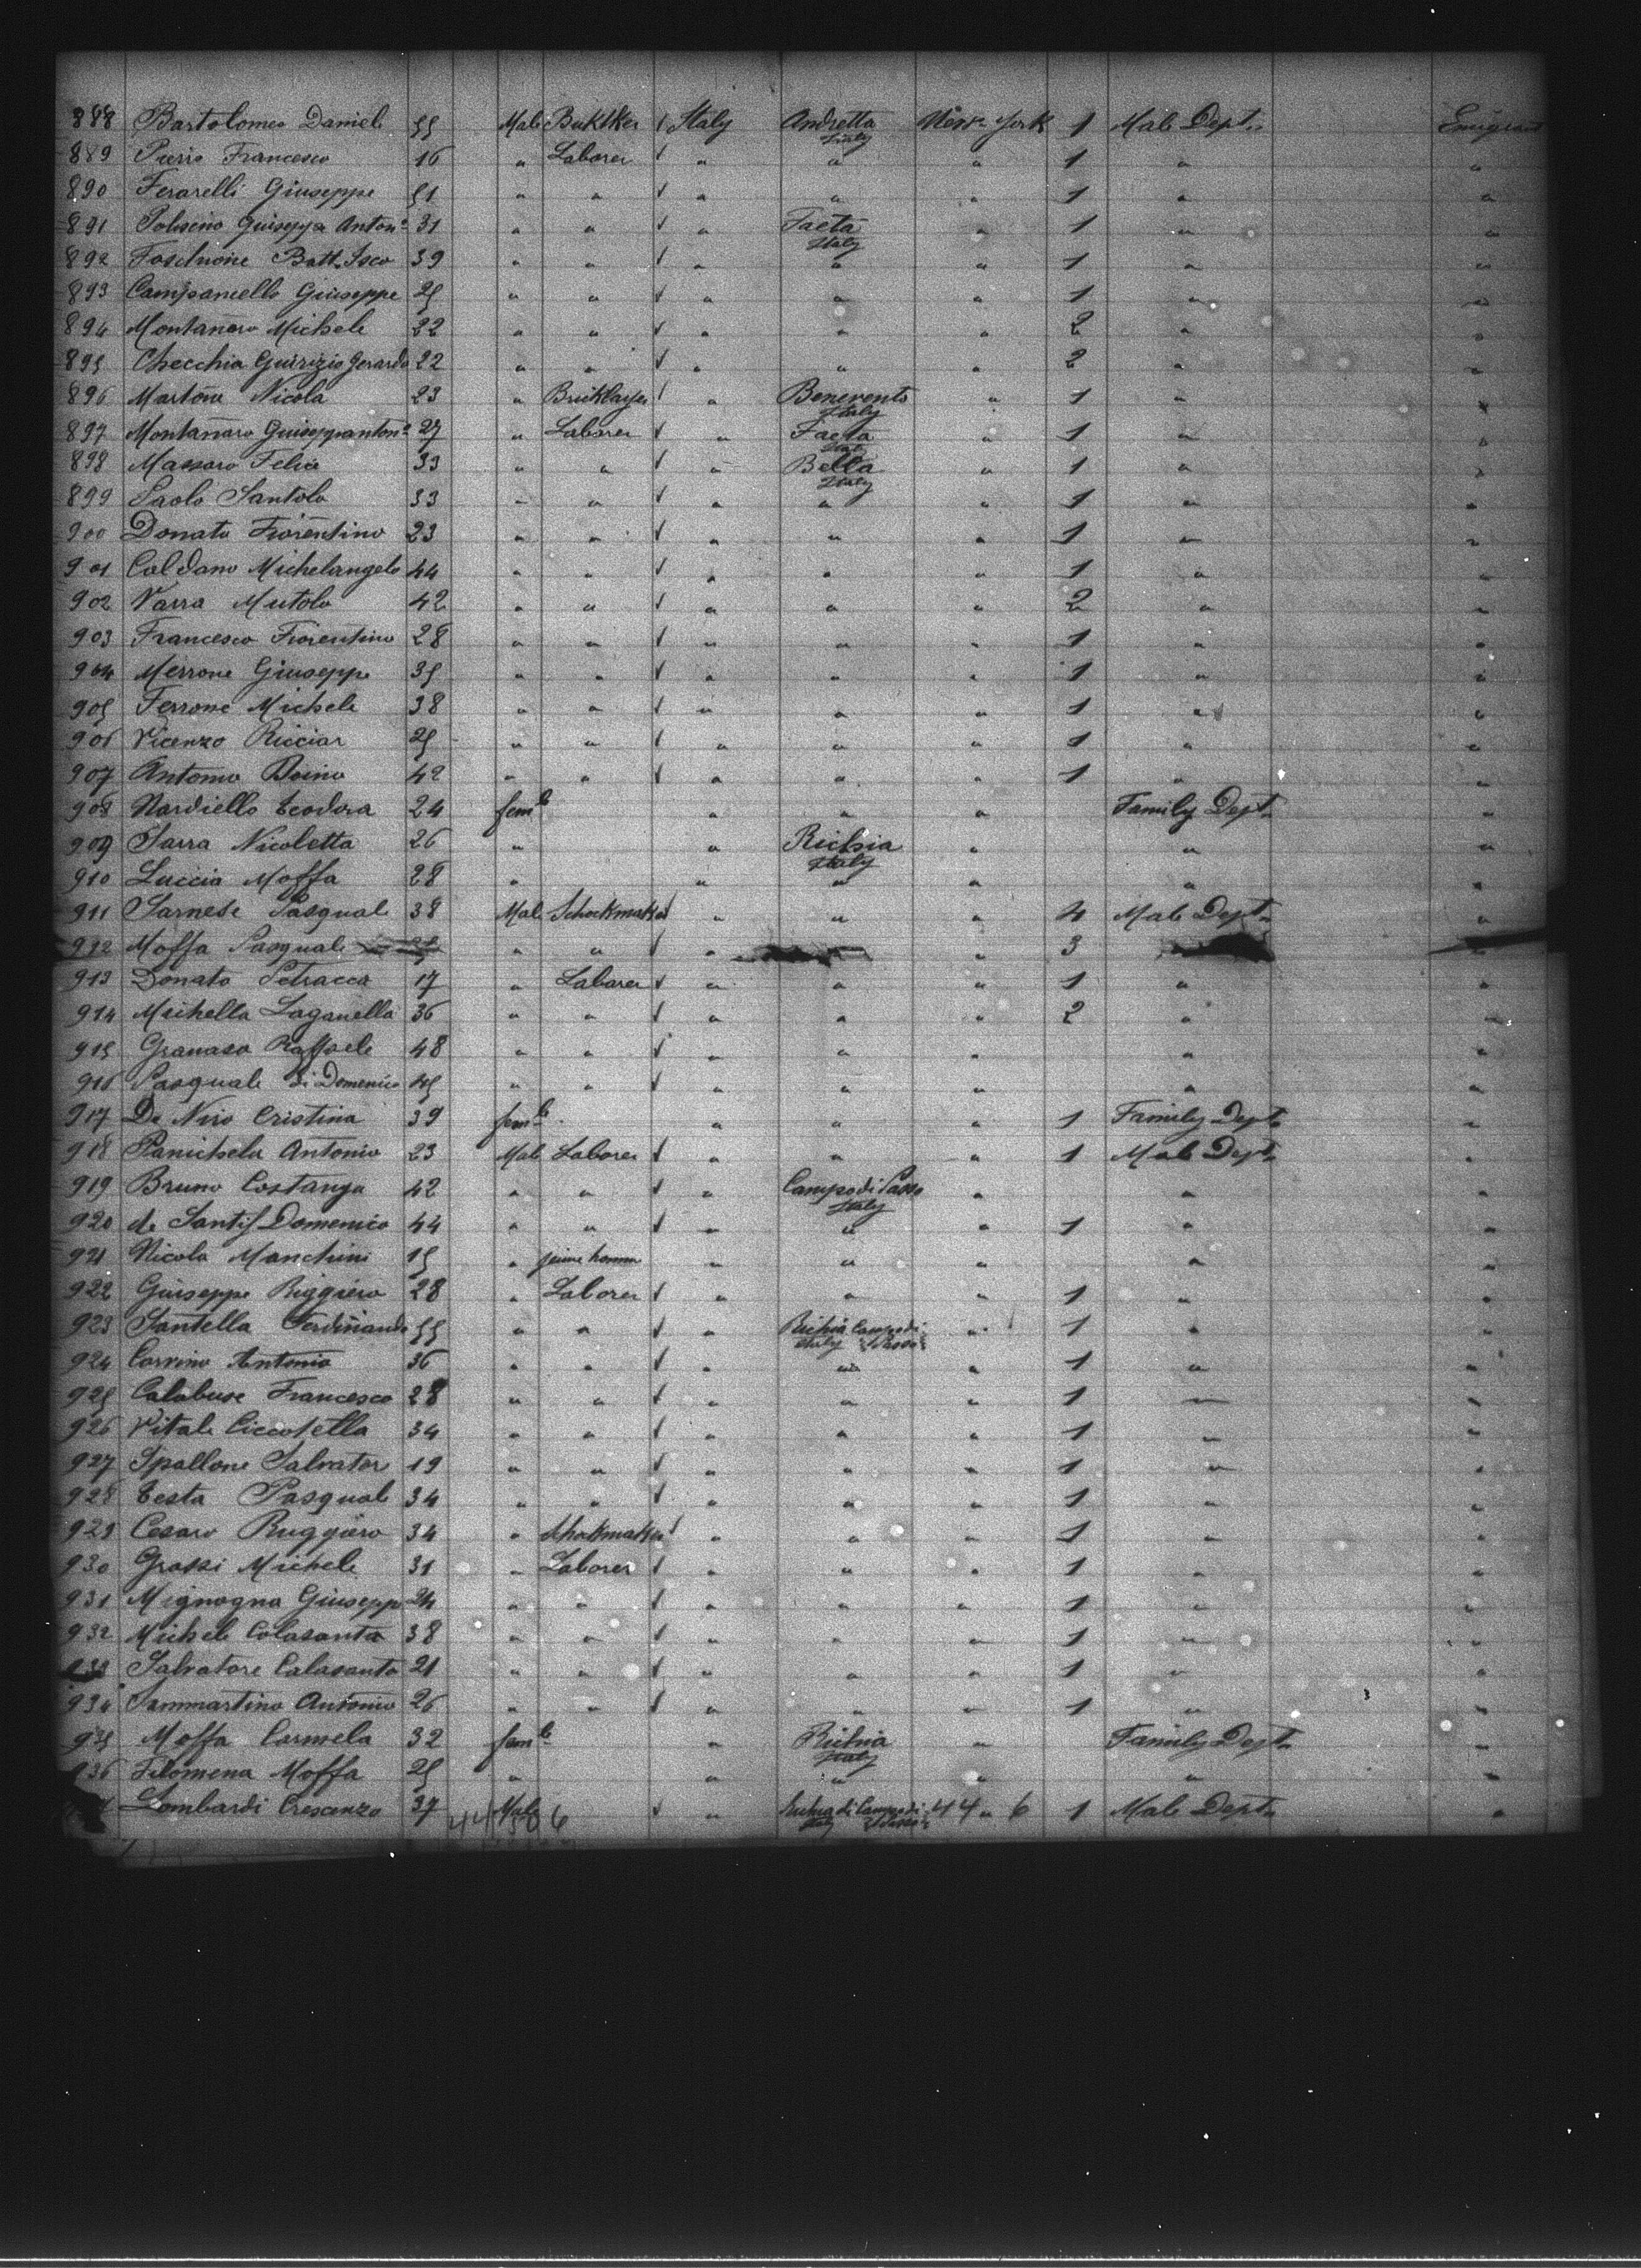 888 Bartolomeo Daniele 55 Male Italy Andretta Italy New York 1 Male Dept. Emigrant
889 Francesco 16 " Laborer " " " 1 " "
890 Ferarelli Giuseppe 51 " " " " " 1 " "
891 Antonº 31 " " " Faeta Italy " 1 " "
892 39 " " " " " 1 " "
893 Campanella Giuseppe 25 " " " " " 1 " "
894 Montanaro Michele 22 " " " " " 2 " "
895 Checchia Gerardo 22 " " " " " 2 " "
896 Martone Nicola 23 " Bricklayer " Benevento Italy " 1 " "
897 Montanaro Guiseppantonº 27 " Laborer " Faeta Italy " 1 " "
898 Massaro Felice 33 " " " Bella Italy " 1 " "
899 Paolo Santolo 33 " " " " " 1 " "
900 Donato Fiorentino 23 " " " " " 1 " "
901 Coldano Michelangelo 44 " " " " " 1 " "
902 Mutolo 42 " " " " " 2 " "
903 Francesco Fiorentino 28 " " " " " 1 " "
904 Merrone Giuseppe 35 " " " " " 1 " "
905 Ferrone Michele 38 " " " " " 1 " "
906 Vicenzo Ricciar 25 " " " " " 1 " "
907 Antonio Boino 42 " " " " " 1 " "
908 Nardiello Teodora 24 feme " " " Family Dept. "
909 Sarra Nicoletta 26 " " Richia Italy " " "
910 Luccia Moffa 28 " " " " " "
911 Sarnese Pasquale 38 Male Schoekmaker " " " 4 Male Dept. "
912 Moffa Pasquale " " " " 3 "
913 Donato Petracca 17 " Laborer " " " 1 " "
914 Michella Laganella 36 " " " " " 2 " "
915 Granaso Raffaele 48 " " " " " " "
916 Pasquale di Domenico 45 " " " " " " "
917 De Niro Cristina 39 feme " " " 1 Family Dept. "
918 Panichela Antonio 23 Male Laborer " " " 1 Male Dept. "
919 Bruno Costanza 42 " " " Campo di Passo Italy " " "
920 de Santis Domenico 44 " " " " " 1 " "
921 Nicola Manchini 15 " jeune homme " " " " "
922 Guiseppe Riggiero 28 " Laborer " " " 1 " "
923 Santella Ferdinando 55 " " " Richia Campo di Passo Italy " 1 " "
924 Corvino Antonio 36 " " " " " 1 " "
925 Calabuse Francesco 28 " " " " " 1 " "
926 Vitale Ciccotella 34 " " " " " 1 " "
927 Spallone Salvator 19 " " " " " 1 " "
928 Testa Pasquale 34 " " " " " 1 " "
929 Cesaro Ruggiero 34 " Schokmaker " " " 1 " "
930 Grassi Michele 31 " Laborer " " " 1 " "
931 Mignogna Giuseppe 24 " " " " " 1 " "
932 Michele Colasanta 38 " " " " " 1 " "
933 Salvatore Calasanto 21 " " " " " 1 " "
934 Sammartino Antonio 26 " " " " " 1 " "
935 Moffa Carmela 32 feme " Richia Italy " Family Dept. "
936 Filomena Moffa 25 " " " " " "
Lombardi Crescenzo 37 Male " Campo di Passo Italy 1 Male Dept. "